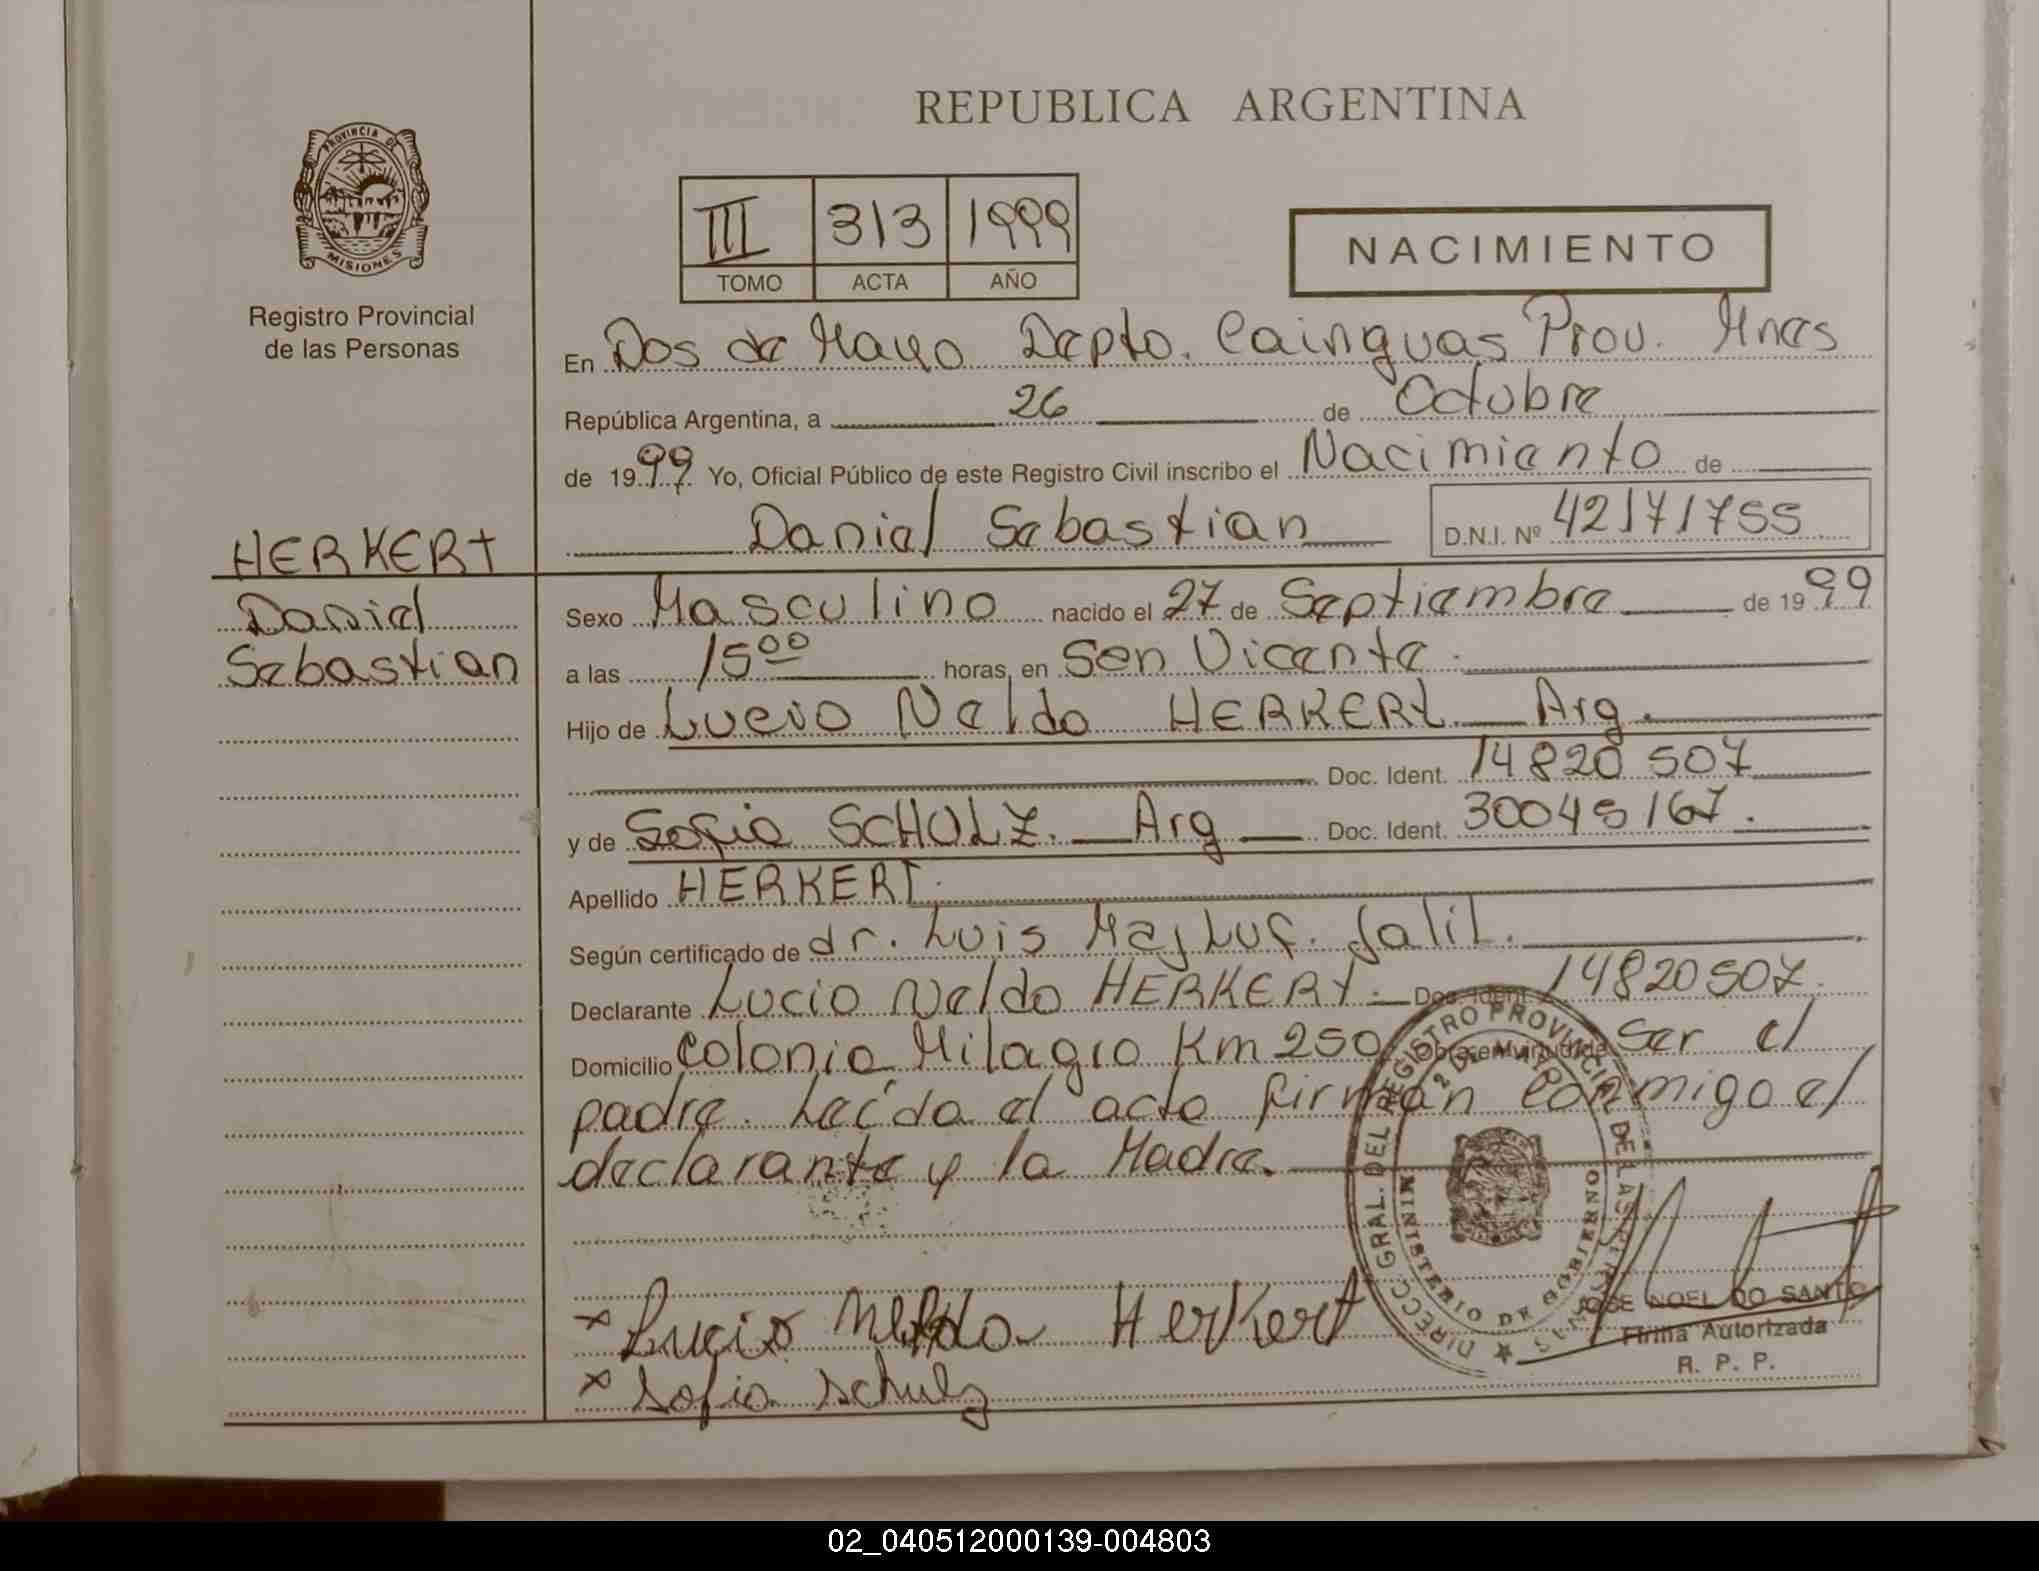 REPUBLICA ARGENTINA
PROVINCIA DE
MISIONES
Registro Provincial
de las Personas
III 313 1999
TOMO ACTA AÑO
NACIMIENTO
En Dos de Mayo Depto. Cainguas Prov. Mnes
República Argentina, a 26 de Octubre
de 1999 Yo, Oficial Público de este Registro Civil inscribo el Nacimiento de
Daniel Sebastian D.N.I. Nº 42171755
HERKERT
Daniel
Sebastian
Sexo Masculino nacido el 27 de Septiembre de 1999
a las 15 00 horas, en San Vicente.
Hijo de Lucio Neldo HERKERT. Arg.
Doc. Ident. 14820507
y de Sofia SCHULZ. Arg Doc. Ident. 30045167.
Apellido HERKERT.
Según certificado de dr. Luis Majluf. Jalil.
Declarante Lucio Neldo HERKERT. Doc. Ident. 14820507.
Domicilio Colonia Milagro Km 250 Obra en virtud de Ser el
padre. Leída el acta firman conmigo el
declarante y la Madre.
x Lucio Neldo Herkert
x Sofia Schulz
DIRECC. GRAL. DEL REGISTRO PROVINCIAL DE LAS PERSONAS
MINISTERIO DE GOBIERNO
2 DE MAYO
JOSE NOEL DO SANTO
Firma Autorizada
R. P. P.
02_040512000139-004803